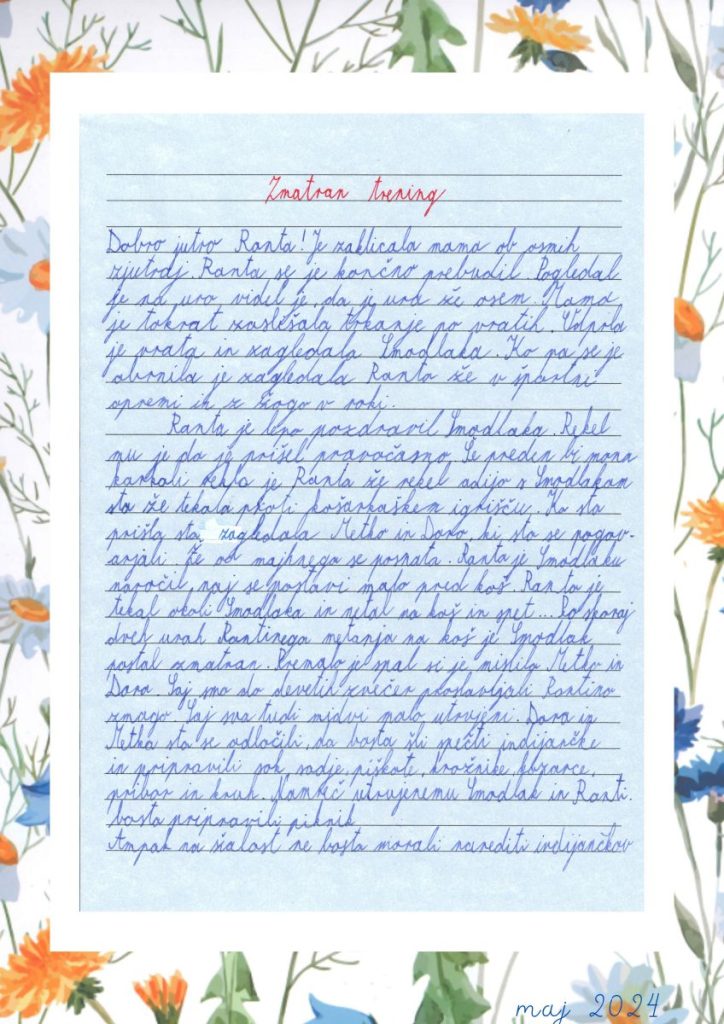 Zmatran trening
Dobro jutro Ranta! Je zaklicala mama ob osmih
zjutraj. Ranta se je končno prebudil. Pogledal
je na uro videl je, da je ura že osem. Mama
je takrat zaslišala trkanje po vratih. Odprla
je vrata in zagledala Smodlaka. Ko pa se je
obrnila je zagledala Ranta že v športni
opremi in z žogo v roki.
Ranta je lepo pozdravil Smodlaka. Rekel
mu je da je prišel pravočasno. Še preden bi mama
karkoli rekla je Ranta že rekel adijo s Smodlakom
sta že tekala proti košarkaškem igrišču. Ko sta
prišla sta zagledala Metko in Doro, ki sta se pogov-
arjali. Že od majhnega se poznata. Ranta je Smodlaku
naročil, naj se postavi malo pred koš. Ranta je
tekal okoli Smodlaka in metal na koš in spet... Po skoraj
dveh urah Rantinega metanja na koš je Smodlak
postal zmatran. Premalo je spal si je mislila Metka in
Dora. Saj smo do devetih zvečer proslavljali Rantino
zmago. Saj sva tudi midvi malo utrujeni. Dora in
Metka sta se odločili, da bosta šli spečti indijančke
in pripravili sok, sadje, piškote, krožnike, kozarce,
pribor in kruh. Namreč utrujenemu Smodlak in Ranti.
bosta pripravili piknik
Ampak na žalost ne bosta morali narediti indijančkov
maj 2024